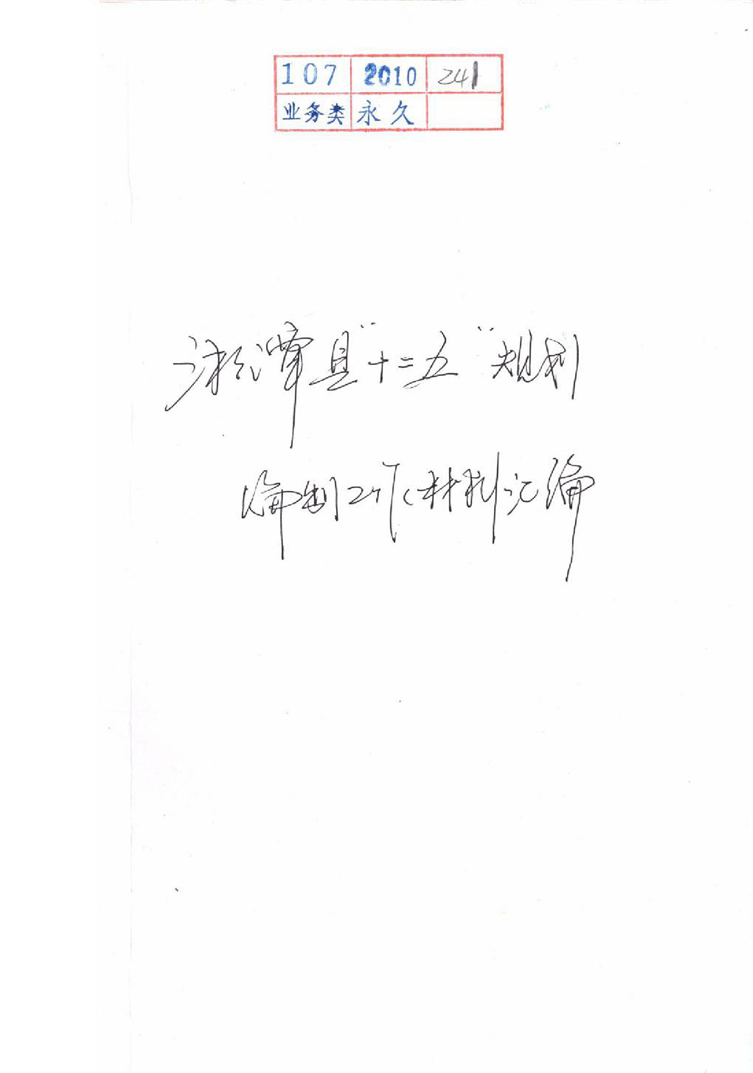 107 2010 241
业务类 永久
湘潭县"十二五"规划
编制工作材料汇编